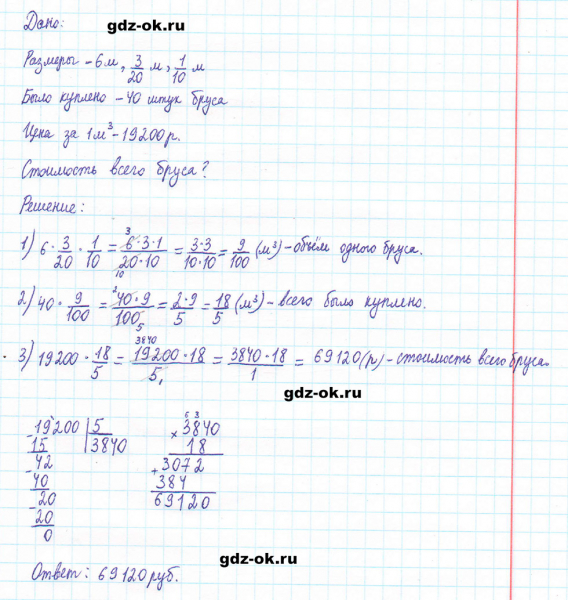 Дано:
gdz-ok.ru
Размеры - 6 м, 3/20 м, 1/10 м
Было куплено - 40 штук бруса
Цена за 1 м³ - 19200 р.
Стоимость всего бруса?
Решение:
1) 6 · 3/20 · 1/10 = 6·3·1/20·10 = 3·3/10·10 = 9/100 (м³) - объём одного бруса.
2) 40 · 9/100 = 40·9/100 = 2·9/5 = 18/5 (м³) - всего было куплено.
3) 19200 · 18/5 = 19200·18/5 = 3840·18/1 = 69120 (р) - стоимость всего бруса.
gdz-ok.ru
19200 | 5
15 3840
42
40
20
20
0
× 3840
18
+ 3072
384
69120
gdz-ok.ru
Ответ: 69120 руб.